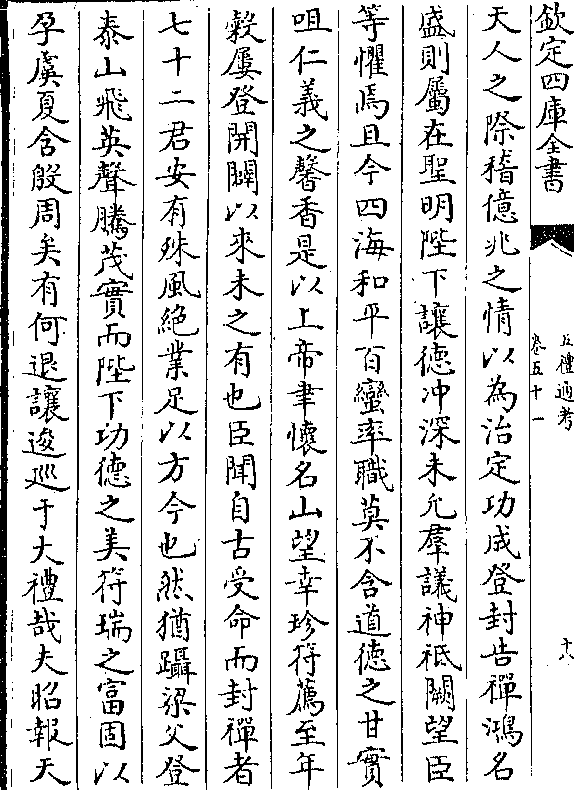 欽定四庫全書
五禮通考
卷五十一
十八
天人之際稽億兆之情以為治定功成登封告禪鴻名
盛則屬在聖明陛下讓德冲深未允羣議神祗闕望臣
等懼焉且今四海和平百蠻率職莫不含道德之甘實
咀仁義之馨香是以上帝聿懷名山望幸珍符薦至年
穀屢登開闢以來未之有也臣聞自古受命而封禪者
七十二君安有殊風絶業足以方今也然猶躡梁父登
泰山飛英聲騰茂實而陛下功德之美符瑞之富固以
孕虞夏含殷周矣有何退讓逡巡于大禮哉夫昭報天